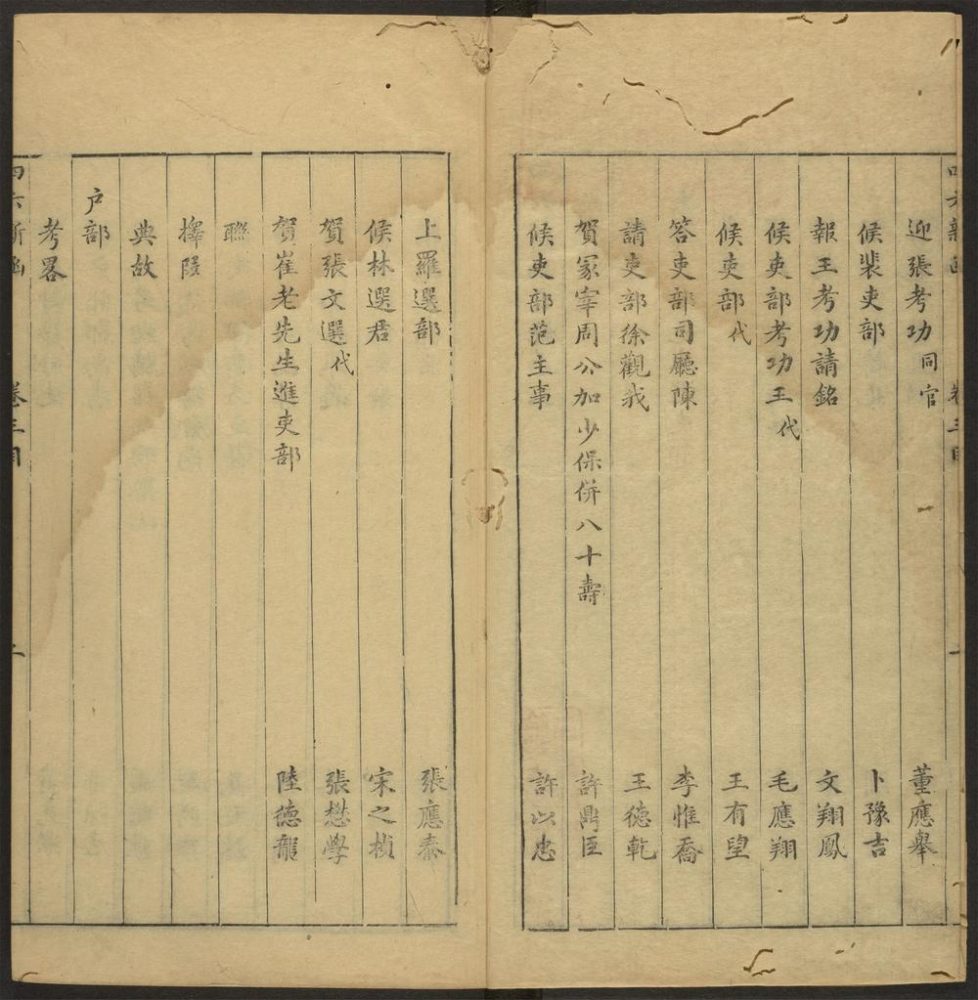 四六新函 卷三目 一
迎張考功同官 董應舉
候裴吏部 卜豫吉
報王考功請銘 文翔鳳
候吏部考功王代 毛應翔
候吏部代 王有望
答吏部司廳陳 李惟喬
請吏部徐觀我 王德乾
賀冢宰周公加少保併八十壽 許鼎臣
候吏部范主事 許以忠
上羅選部 張應泰
候林選君 宋之楨
賀張文選代 張懋學
賀崔老先生進吏部 陸德龍
聯
摘段
典故
户部
考畧
四六新函 卷三目 二